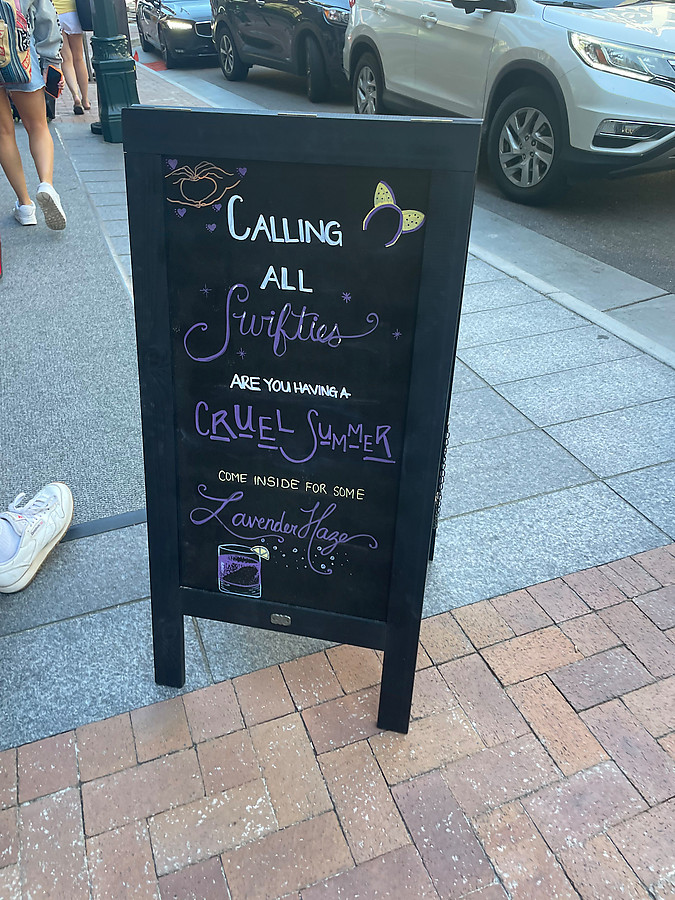 CALLING
ALL
Swifties
ARE YOU HAVING A
CRUEL SUMMER
COME INSIDE FOR SOME
Lavender Haze